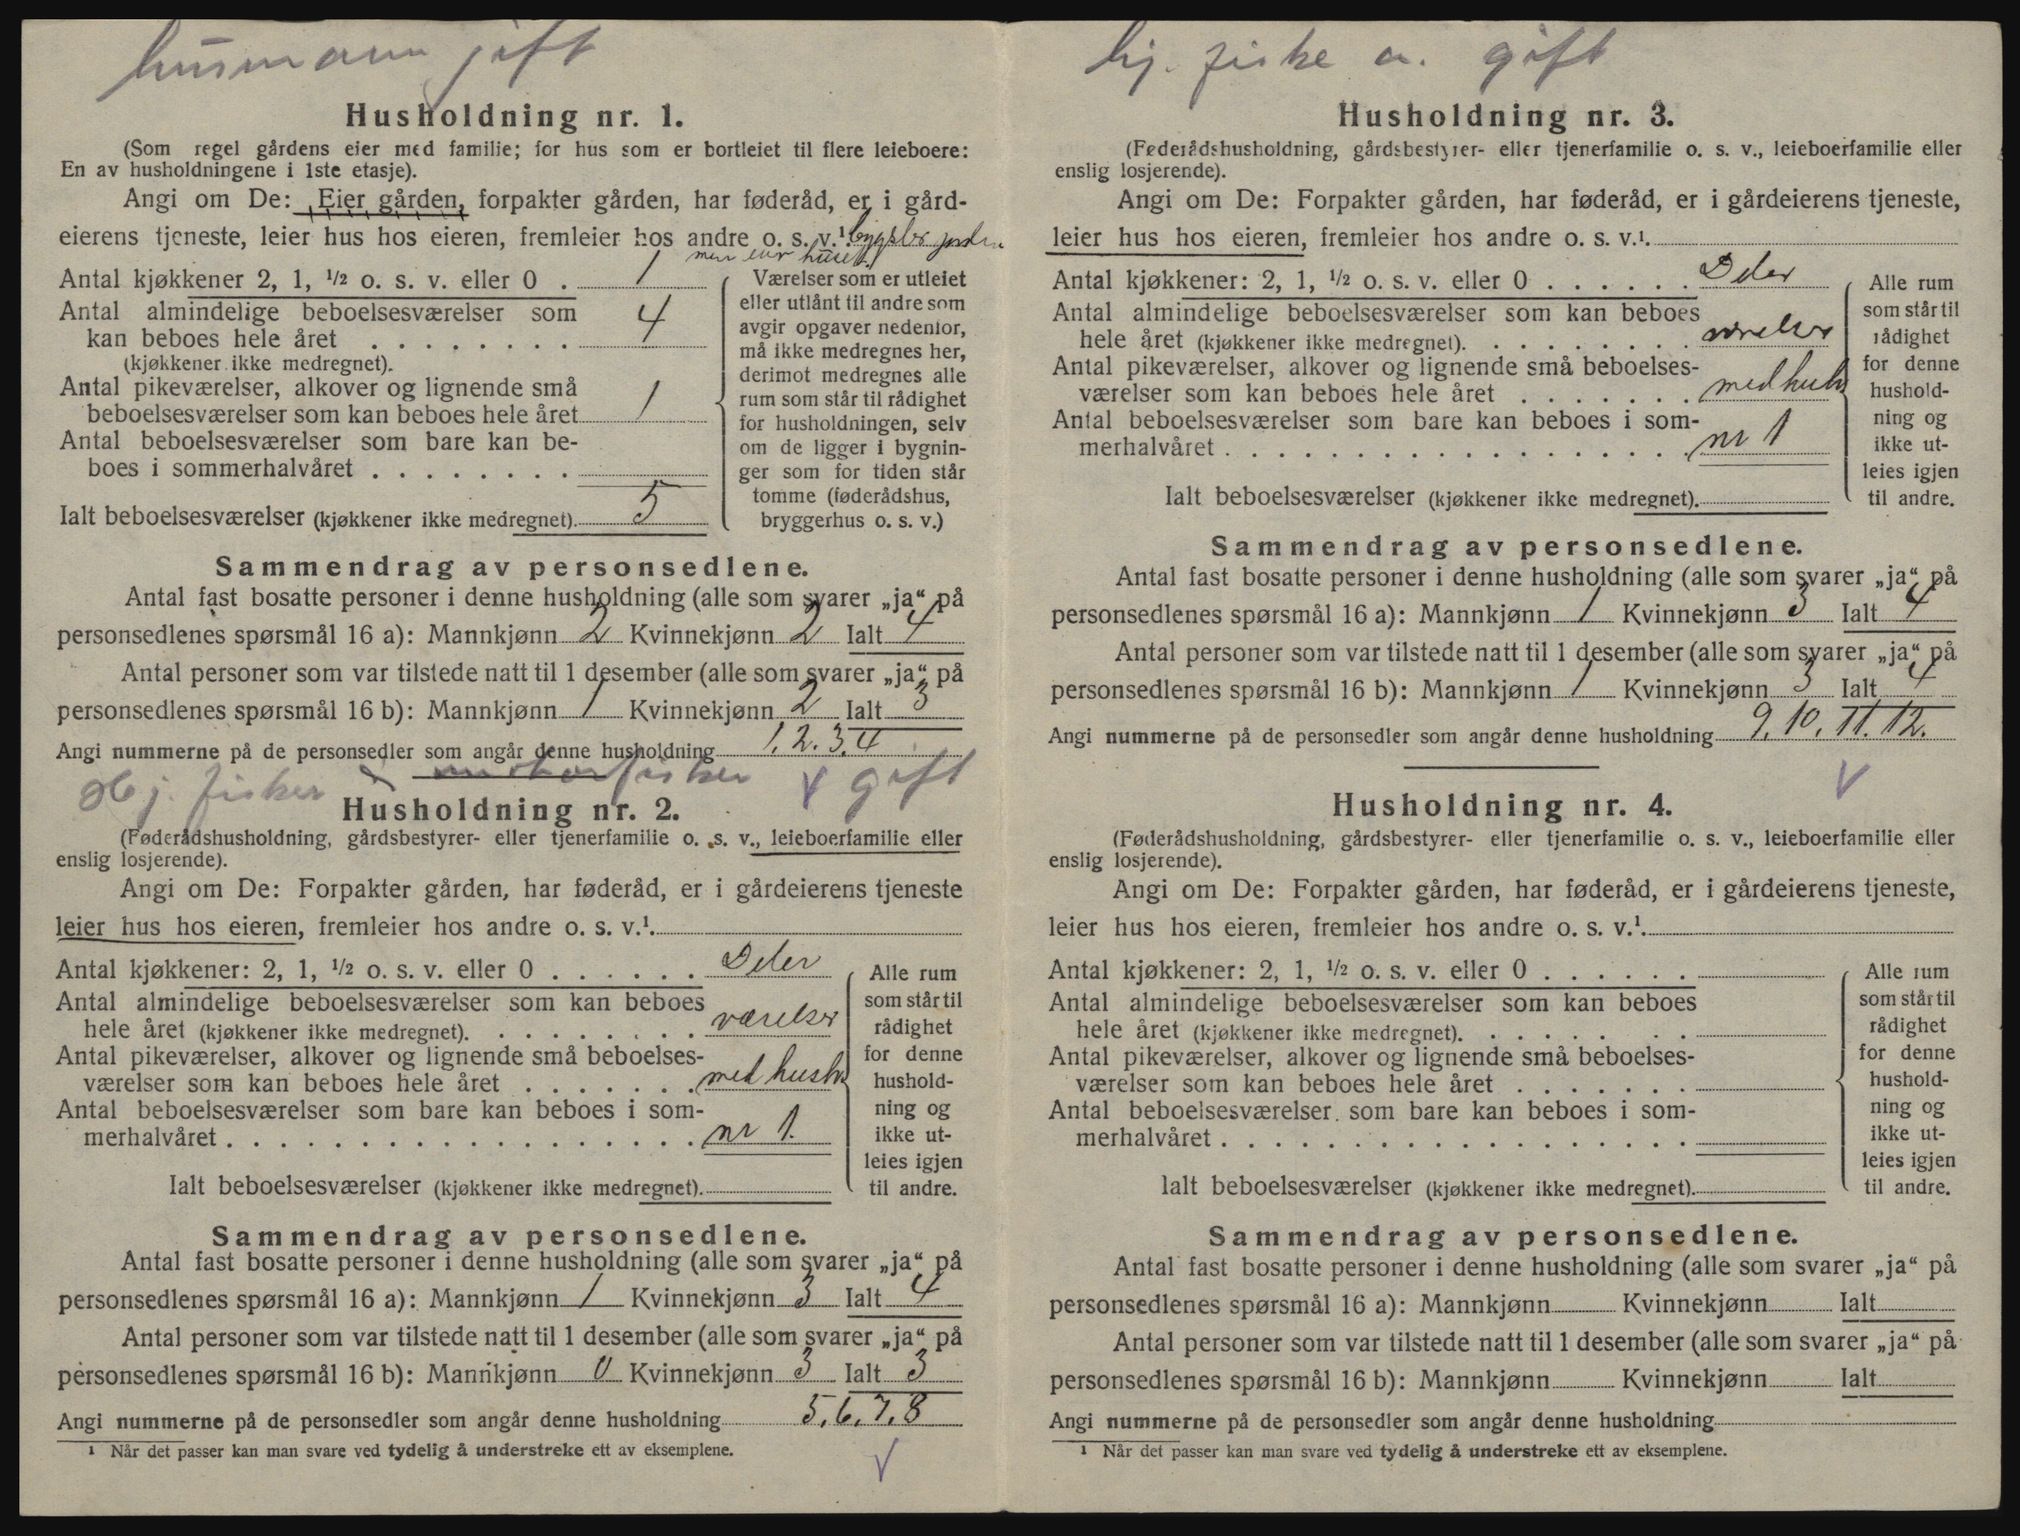 husmann gift
Husholdning nr. 1.
(Som regel gårdens eier med familie; for hus som er bortleiet til flere leieboere:
En av husholdningene i 1ste etasje).
Angi om De: Eier gården, forpakter gården, har føderåd, er i gård-
eierens tjeneste, leier hus hos eieren, fremleier hos andre o. s. v.¹ bygsler jorden
men eier huset.
Antal kjøkkener 2, 1, ½ o. s. v. eller 0 . 1
Antal almindelige beboelsesværelser som
kan beboes hele året . . . . . . . . 4
(kjøkkener ikke medregnet).
Antal pikeværelser, alkover og lignende små
beboelsesværelser som kan beboes hele året 1
Antal beboelsesværelser som bare kan be-
boes i sommerhalvåret . . . . . . . .
Ialt beboelsesværelser (kjøkkener ikke medregnet). 5
Værelser som er utleiet
eller utlånt til andre som
avgir opgaver nedenfor,
må ikke medregnes her,
derimot medregnes alle
rum som står til rådighet
for husholdningen, selv
om de ligger i bygnin-
ger som for tiden står
tomme (føderådshus,
bryggerhus o. s. v.)
Sammendrag av personsedlene.
Antal fast bosatte personer i denne husholdning (alle som svarer „ja“ på
personsedlenes spørsmål 16 a): Mannkjønn 2 Kvinnekjønn 2 Ialt 4
Antal personer som var tilstede natt til 1 desember (alle som svarer „ja“ på
personsedlenes spørsmål 16 b): Mannkjønn 1 Kvinnekjønn 2 Ialt 3
Angi nummerne på de personsedler som angår denne husholdning 1. 2. 3. 4
hj. fisker fisker v gift
Husholdning nr. 2.
(Føderådshusholdning, gårdsbestyrer- eller tjenerfamilie o. s. v., leieboerfamilie eller
enslig losjerende).
Angi om De: Forpakter gården, har føderåd, er i gårdeierens tjeneste
leier hus hos eieren, fremleier hos andre o. s. v.¹.
Antal kjøkkener: 2, 1, ½ o. s. v. eller 0 . . . . . . Deler
Antal almindelige beboelsesværelser som kan beboes
hele året (kjøkkener ikke medregnet). . . . . . . . . værelser
Antal pikeværelser, alkover og lignende små beboelses-
værelser som kan beboes hele året . . . . . . . med hush
Antal beboelsesværelser som bare kan beboes i som-
merhalvåret . . . . . . . . . . . . . . . . . . nr 1.
Ialt beboelsesværelser (kjøkkener ikke medregnet).
Alle rum
som står til
rådighet
for denne
hushold-
ning og
ikke ut-
leies igjen
til andre.
Sammendrag av personsedlene.
Antal fast bosatte personer i denne husholdning (alle som svarer „ja“ på
personsedlenes spørsmål 16 a): Mannkjønn 1 Kvinnekjønn 3 Ialt 4
Antal personer som var tilstede natt til 1 desember (alle som svarer „ja“ på
personsedlenes spørsmål 16 b): Mannkjønn 0 Kvinnekjønn 3 Ialt 3
Angi nummerne på de personsedler som angår denne husholdning 5. 6. 7. 8
¹ Når det passer kan man svare ved tydelig å understreke ett av eksemplene.
v
hj. fiske a. gift
Husholdning nr. 3.
(Føderådshusholdning, gårdsbestyrer- eller tjenerfamilie o. s. v., leieboerfamilie eller
enslig losjerende).
Angi om De: Forpakter gården, har føderåd, er i gårdeierens tjeneste,
leier hus hos eieren, fremleier hos andre o. s. v.¹.
Antal kjøkkener: 2, 1, ½ o. s. v. eller 0 . . . . . . Deler
Antal almindelige beboelsesværelser som kan beboes
hele året (kjøkkener ikke medregnet). . . . . . . . . værelser
Antal pikeværelser, alkover og lignende små beboelses-
værelser som kan beboes hele året . . . . . . . med hush
Antal beboelsesværelser som bare kan beboes i som-
merhalvåret . . . . . . . . . . . . . . . . . . nr 1
Ialt beboelsesværelser (kjøkkener ikke medregnet).
Alle rum
som står til
rådighet
for denne
hushold-
ning og
ikke ut-
leies igjen
til andre.
Sammendrag av personsedlene.
Antal fast bosatte personer i denne husholdning (alle som svarer „ja“ på
personsedlenes spørsmål 16 a): Mannkjønn 1 Kvinnekjønn 3 Ialt 4
Antal personer som var tilstede natt til 1 desember (alle som svarer „ja“ på
personsedlenes spørsmål 16 b): Mannkjønn 1 Kvinnekjønn 3 Ialt 4
Angi nummerne på de personsedler som angår denne husholdning 9. 10. 11. 12.
v
Husholdning nr. 4.
(Føderådshusholdning, gårdsbestyrer- eller tjenerfamilie o. s. v., leieboerfamilie eller
enslig losjerende).
Angi om De: Forpakter gården, har føderåd, er i gårdeierens tjeneste,
leier hus hos eieren, fremleier hos andre o. s. v.¹.
Antal kjøkkener: 2, 1, ½ o. s. v. eller 0 . . . . . .
Antal almindelige beboelsesværelser som kan beboes
hele året (kjøkkener ikke medregnet). . . . . . . . .
Antal pikeværelser, alkover og lignende små beboelses-
værelser som kan beboes hele året . . . . . . .
Antal beboelsesværelser som bare kan beboes i som-
merhalvåret . . . . . . . . . . . . . . . . . .
Ialt beboelsesværelser (kjøkkener ikke medregnet).
Alle rum
som står til
rådighet
for denne
hushold-
ning og
ikke ut-
leies igjen
til andre.
Sammendrag av personsedlene.
Antal fast bosatte personer i denne husholdning (alle som svarer „ja“ på
personsedlenes spørsmål 16 a): Mannkjønn Kvinnekjønn Ialt
Antal personer som var tilstede natt til 1 desember (alle som svarer „ja“ på
personsedlenes spørsmål 16 b): Mannkjønn Kvinnekjønn Ialt
Angi nummerne på de personsedler som angår denne husholdning
¹ Når det passer kan man svare ved tydelig å understreke ett av eksemplene.